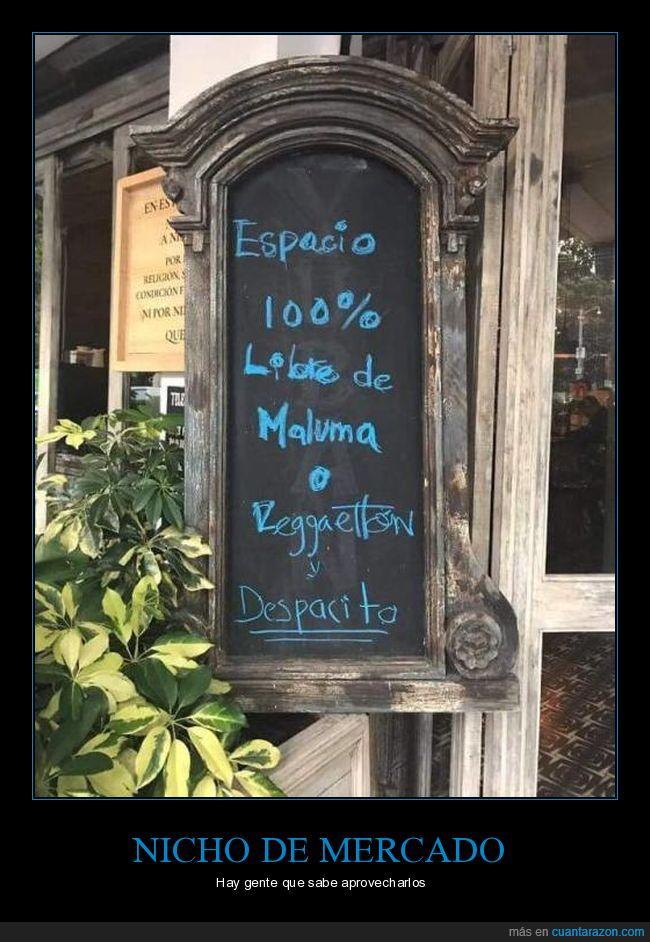 EN ES
A NI
POR
RELIGIÓN, S
CONDICIÓN F
NI POR NI
QUE
Espacio
100%
Libre de
Maluma
o
Reggaettón
y
Despacito
NICHO DE MERCADO
Hay gente que sabe aprovecharlos
más en cuantarazon.com